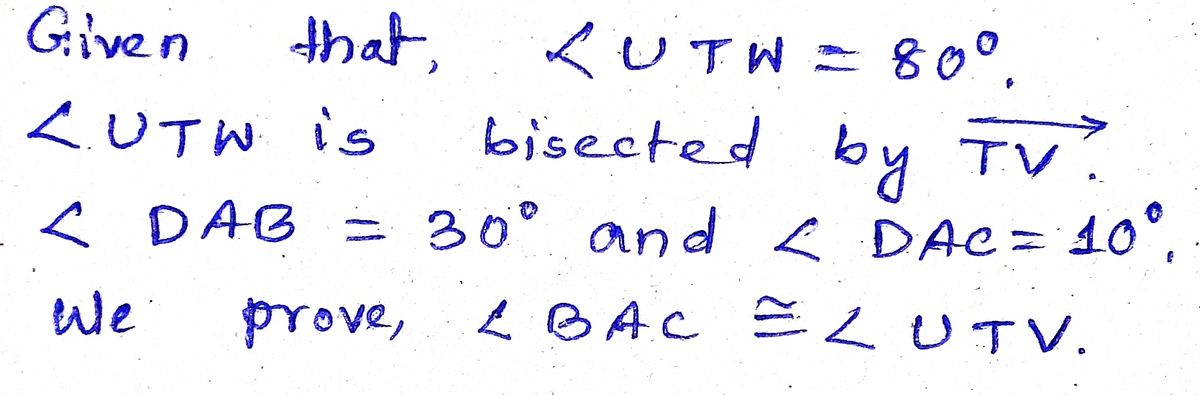 Given that, ∠UTW = 80°.
∠UTW is bisected by $\overrightarrow{TV}$.
∠DAB = 30° and ∠DAC = 10°.
We prove, ∠BAC ≅ ∠UTV.